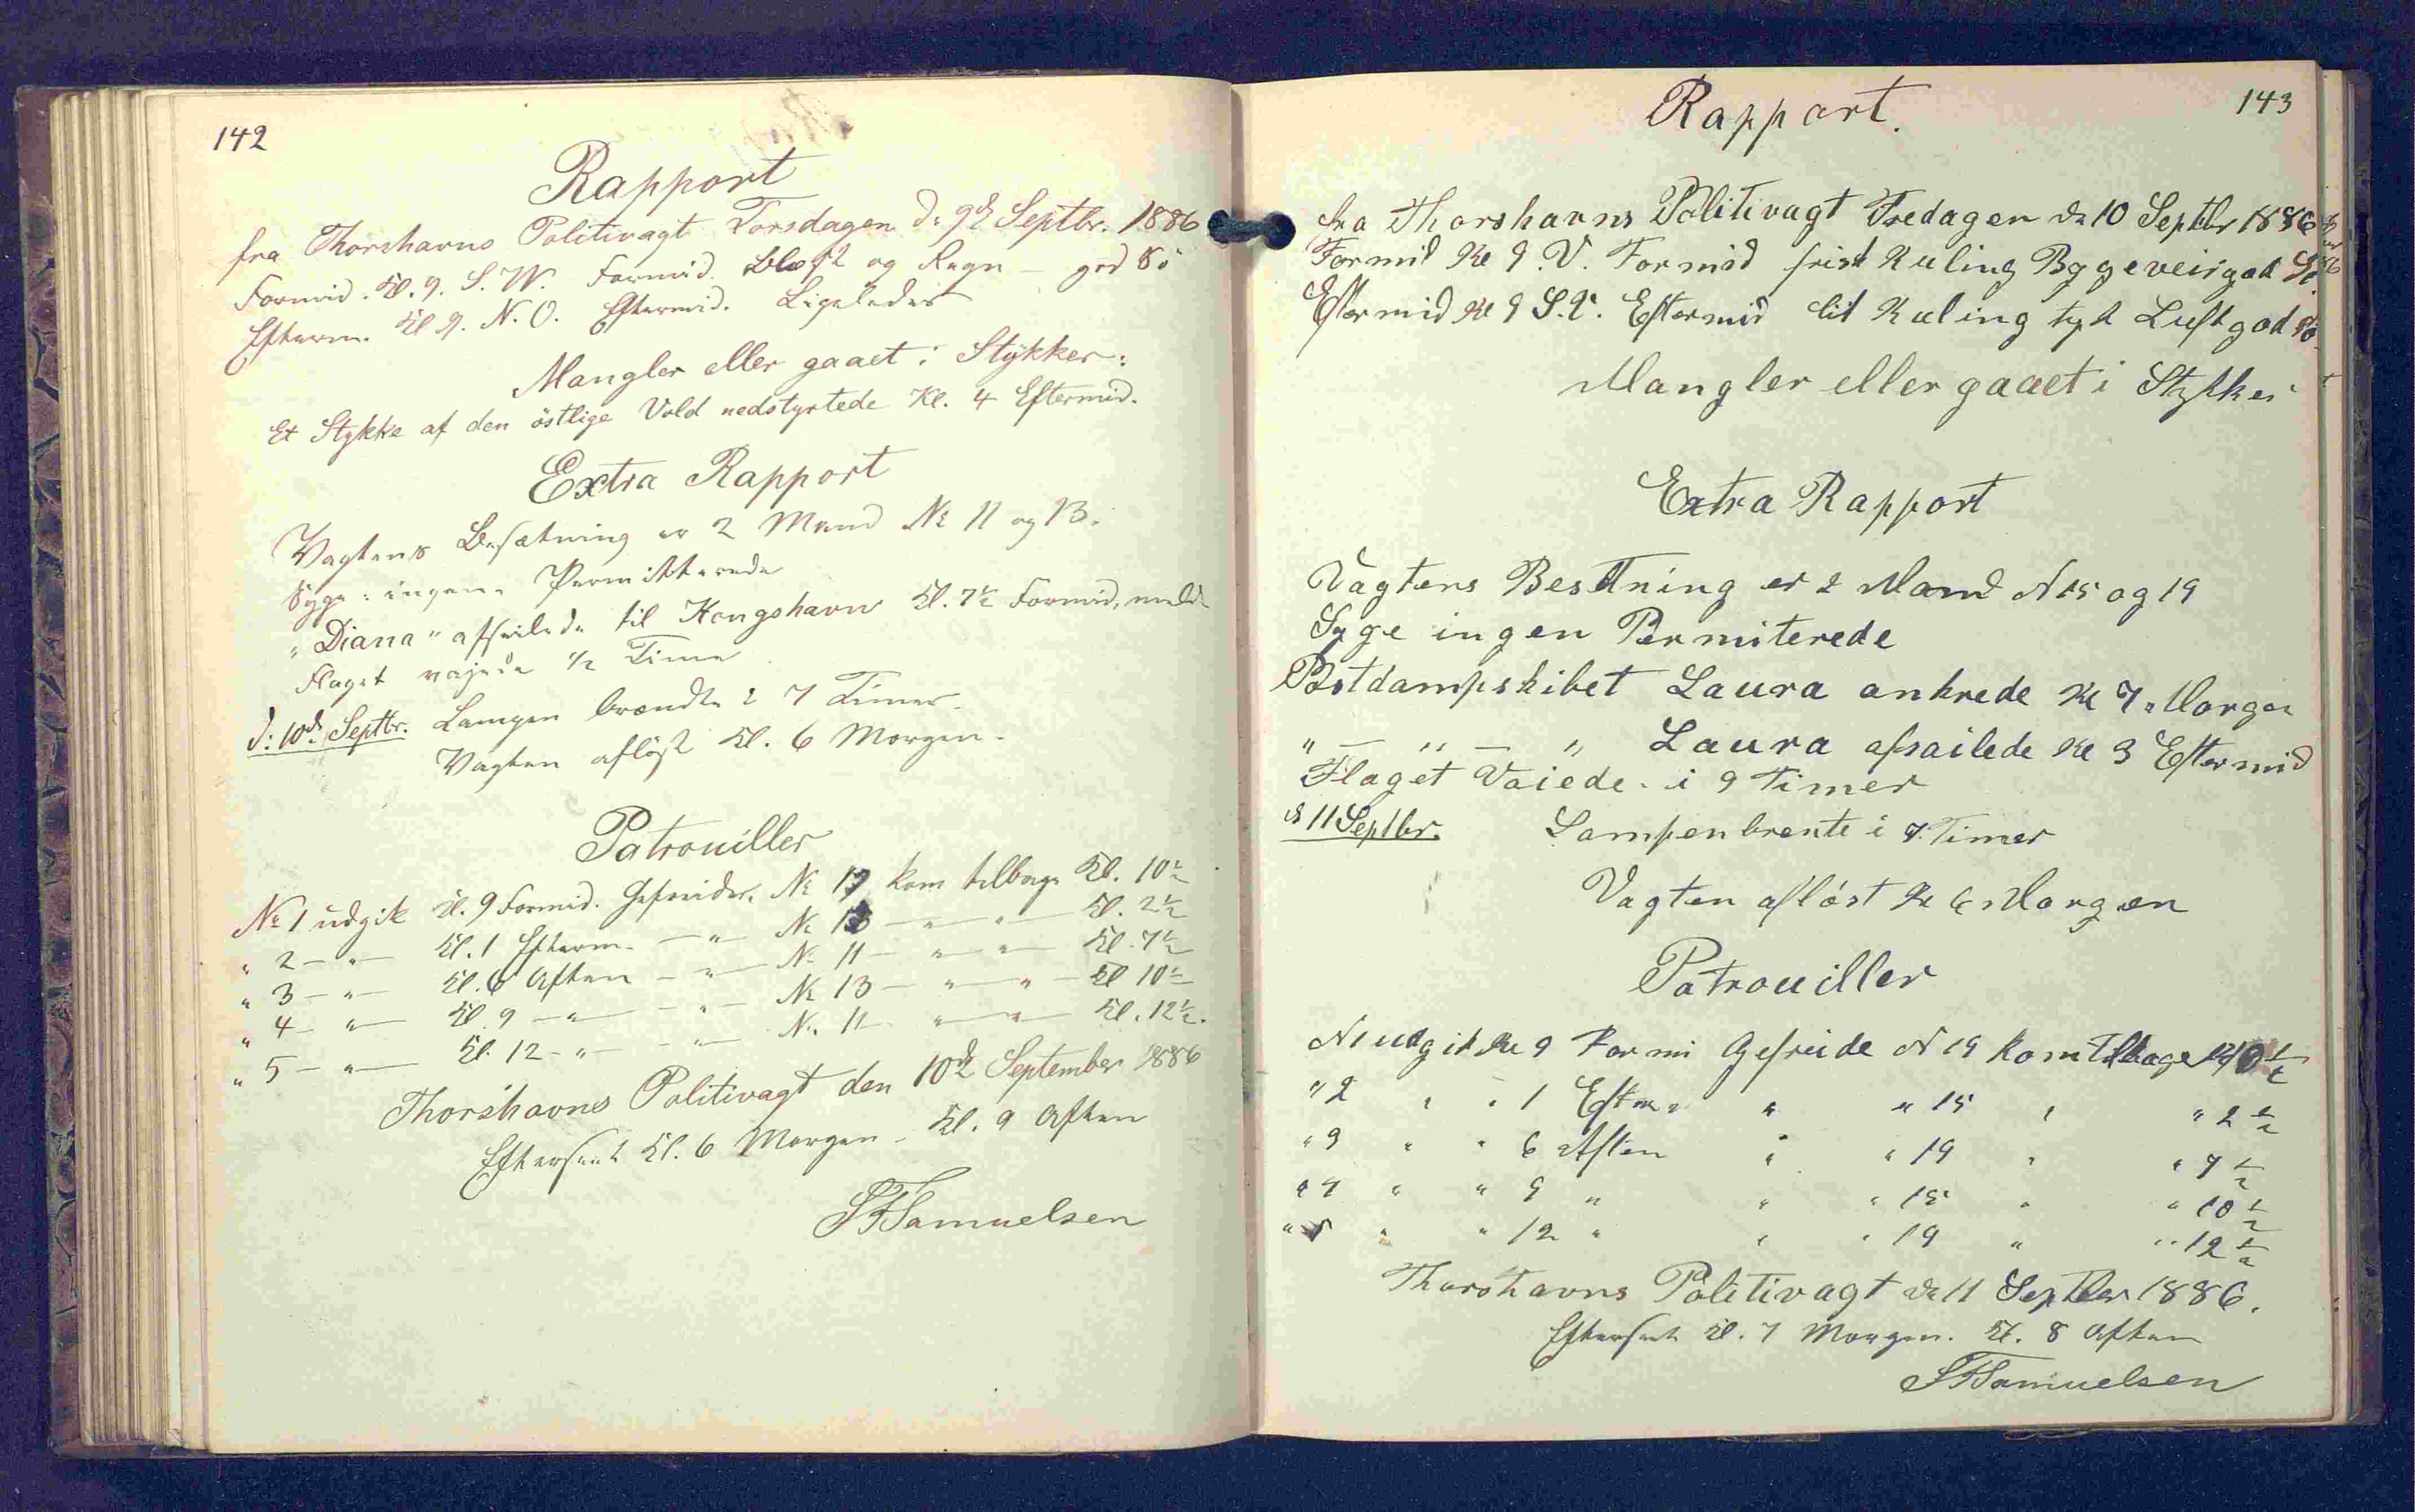 142
Rapport
fra Thorshavns Politivagt Torsdagen d: 9d Septbr. 1886
Formid. Kl. 9. S.W. Formid. Blæst og Regn – god Sö
Efterm. Kl 9. N.O. Eftermid. Ligeledes
Mangler eller gaaet i Stykker:
Et Stykke af den östlige Vold nedstyrtede Kl. 4 Eftermid.
Extra Rapport
Vagtens Besætning er 2 Mand No 11 og 13.
Syge: ingen. Permitterede
"Diana" afseilede til Kongshavn Kl. 7½ Formid,
Flaget vajede ½ Time
d: 10d. Septbr. Lampen brændte i 7 Timer.
Vagten aflöst Kl. 6 Morgen.
Patrouiller
No 1 udgik Kl. 9 Formid. Gefreider. No 13 kom tilbage Kl. 10½
" 2 – " – Kl. 1 Efterm. – " – No 13 – " – " – Kl. 2½
" 3 – " – Kl. 6 Aften – " – No 11 – " – " – Kl. 7½
" 4 – " – Kl. 9 – " – – " – No 13 – " – " – Kl 10½
" 5 – " – Kl. 12 – " – – " – No. 11 – " – " – Kl. 12½.
Thorshavns Politivagt den 10d September 1886
Efterseet Kl. 6 Morgen – Kl. 9 Aften
Samuelsen
143
Rapport.
fra Thorshavns Politivagt Fredagen de 10 Septbr 1886
Formid Kl 9. V. Formid frisk Kuling Byge veir god Sö
Eftermid Kl 9 S.V. Eftermid lit Kuling tyk Luft god Sö
Mangler eller gaaet i Stykker
Extra Rapport
Vagtens Besetning er 2 Mand N 15 og 19
Syge ingen Permiterede
Postdampskibet Laura ankrede Kl 7 Morgen
" – " – " Laura afsailede Kl 3 Eftermid
Flaget Vaiede i 9 Timer
d 11 Septbr. Lampen brente i 7 Timer
Vagten aflöst Kl 6 Morgen
Patrouiller
N 1 udgik Kl 9 Formi Gefreide N 19 kom Tilbage Kl 10½
" 2 " " 1 Efterm " " 15 " " 2½
" 3 " " 6 Aften " " 19 " " 7½
" 4 " " 9 " " " 15 " " 10½
" 5 " " 12 " " " 19 " " 12½
Thorshavns Politivagt de 11 Septbr 1886.
Efterseet Kl. 7 Morgen. Kl. 8 Aften
Samuelsen